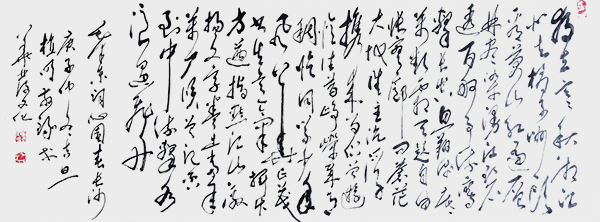 独立寒秋湘江
北去橘子洲头
看万山红遍层
林尽染漫江碧
透百舸争流鹰
击长空鱼翔浅底
万类霜天竞自由
怅寥廓问苍茫
大地谁主沉浮
携来百侣曾游
忆往昔峥嵘岁月
稠恰同学少年
风华正茂
书生意气挥斥
方遒指点江山激
扬文字粪土当年
万户侯曾记否
到中流击水
浪遏飞舟
毛泽东词沁园春长沙
庚子仲冬吉旦